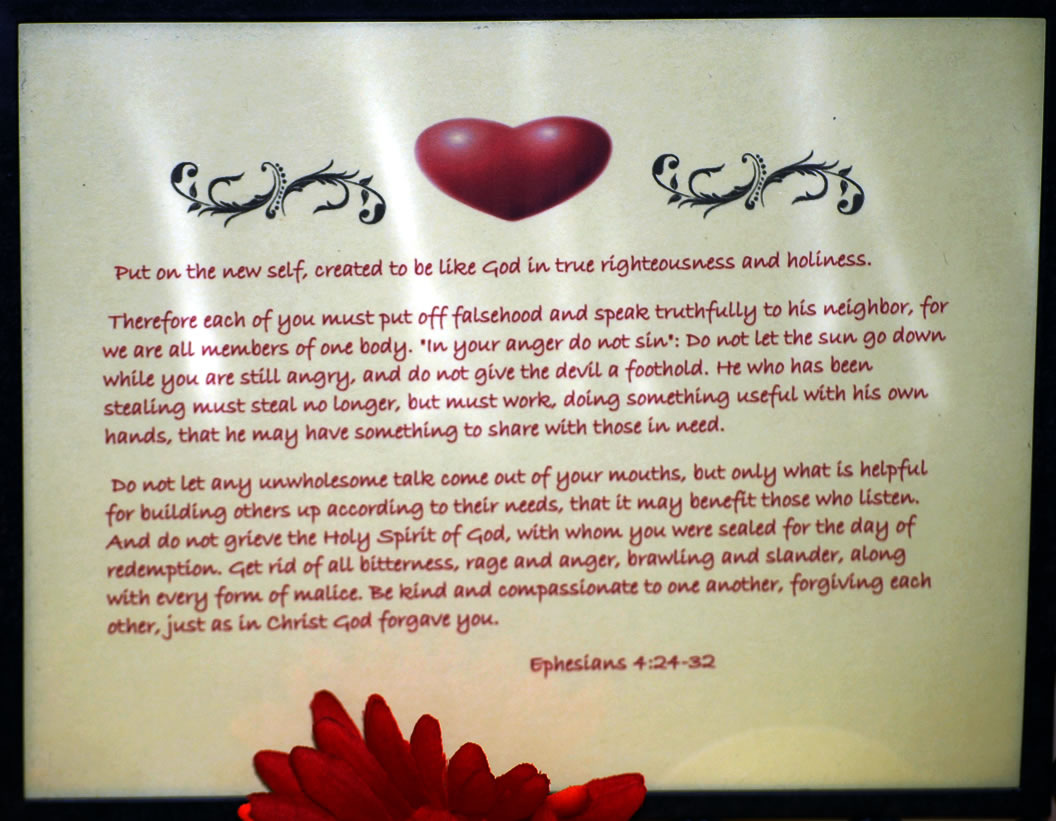 Put on the new self, created to be like God in true righteousness and holiness.
Therefore each of you must put off falsehood and speak truthfully to his neighbor, for
we are all members of one body. "In your anger do not sin": Do not let the sun go down
while you are still angry, and do not give the devil a foothold. He who has been
stealing must steal no longer, but must work, doing something useful with his own
hands, that he may have something to share with those in need.
Do not let any unwholesome talk come out of your mouths, but only what is helpful
for building others up according to their needs, that it may benefit those who listen.
And do not grieve the Holy Spirit of God, with whom you were sealed for the day of
redemption. Get rid of all bitterness, rage and anger, brawling and slander, along
with every form of malice. Be kind and compassionate to one another, forgiving each
other, just as in Christ God forgave you.
Ephesians 4:24-32